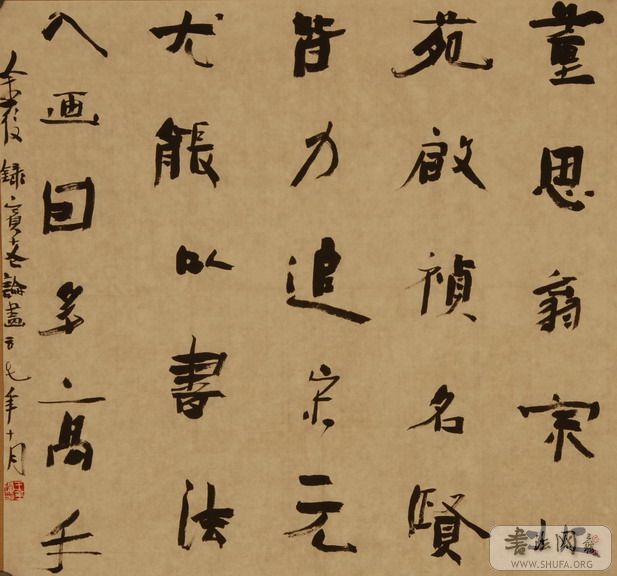 董思翁宗北
苑啟禎名賢
皆力追宋元
尤能以書法
入画因多高手
録賓老論畫 七年十月
書法网
WWW.SHUFA.ORG